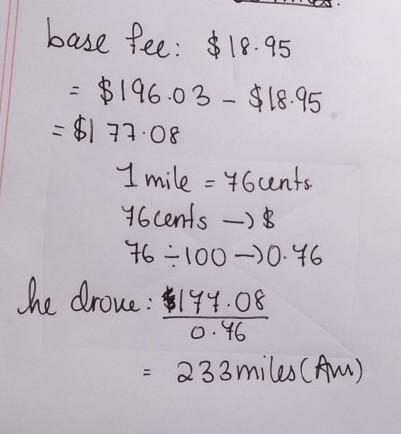 base fee: $18.95
= $196.03 - $18.95
= $177.08
1 mile = 76cents
76cents → $
76 ÷ 100 → 0.76
he drove: $177.08
0.76
= 233miles (Ans)